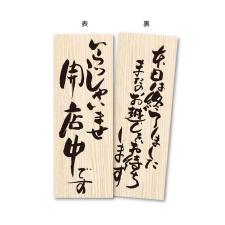 表
いらっしゃいませ
開店中です
裏
本日は終了しました
またのお越しをお待ち
します